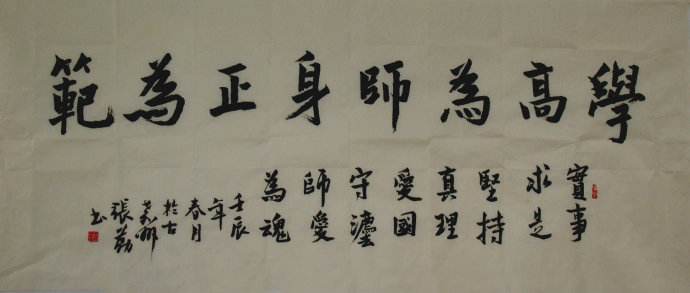 學高為師身正為範
實事
求是
堅持
真理
愛國
守灋
師愛
為魂
壬辰
年
春月
於古
張
书